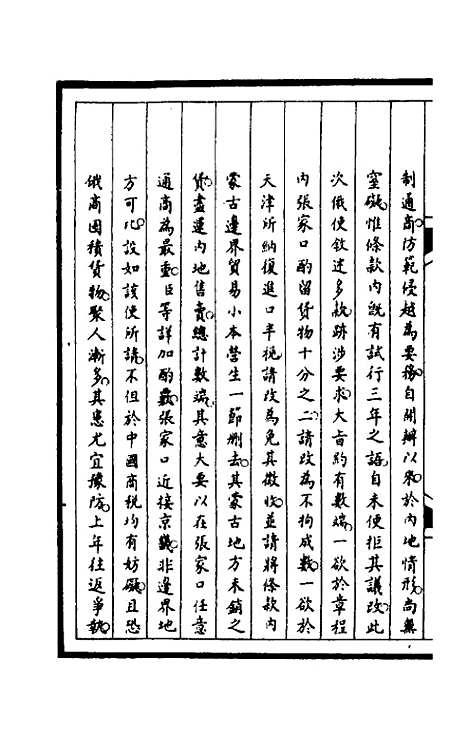 制通商防範侵越為要務自開辦以來於內地情形尚無
窒礙惟條款內既有試行三年之語自未便拒其議改此
次俄使敘述多款跡涉要求大旨約有數端一欲於章程
內張家口酌留貨物十分之二請改為不拘成數一欲於
天津所納復進口半稅請改為免其徵收並請將條款內
蒙古邊界貿易小本營生一節刪去其蒙古地方未銷之
貨盡運內地售賣總計數端其意大要以在張家口任意
通商為最重臣等詳加酌覈張家口近接京畿非邊界地
方可比設如該使所請不但於中國商稅均有妨礙且恐
俄商囤積貨物聚人漸多其患尤宜豫防上年往返爭執